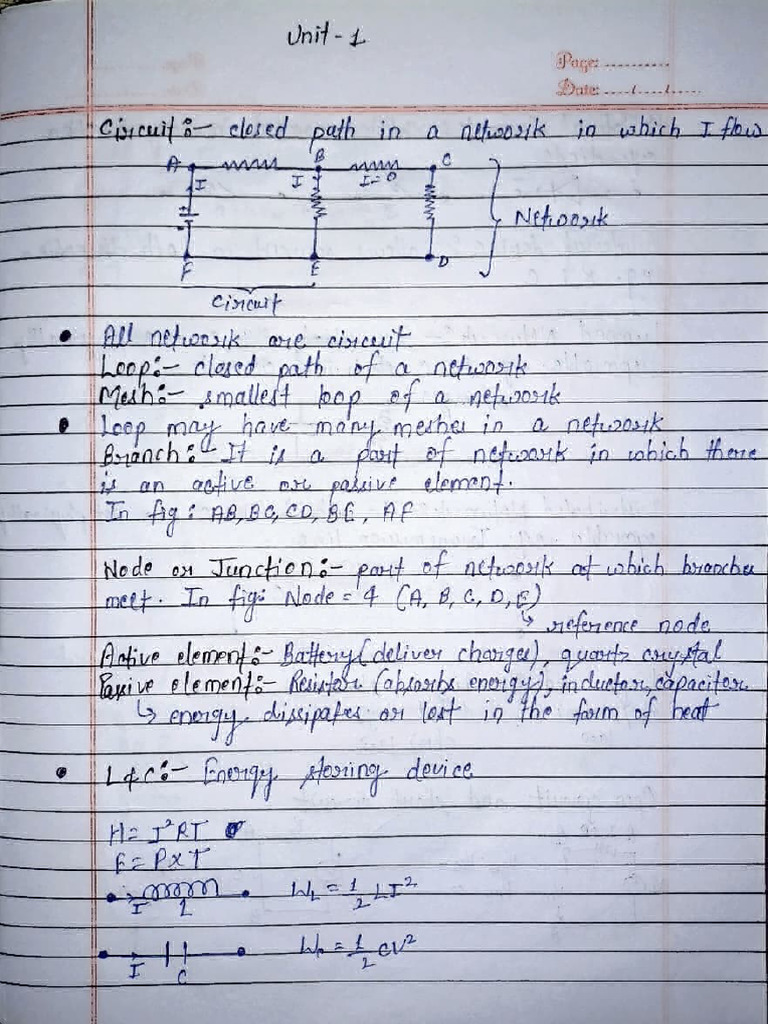 Unit - 1
Page: ..........
Date: ...../...../.....
Circuit :- closed path in a network in which I flow
A B C
I I I=0
Network
F E D
circuit
• All network are circuit
Loop :- closed path of a network
Mesh :- smallest loop of a network
• Loop may have many meshes in a network
Branch :- It is a part of network in which there
is an active or passive element.
In fig : AB, BC, CD, BE, AF
Node or Junction :- part of network at which branches
meet. In fig: Node = 4 (A, B, C, D, E)
↳ reference node
Active element :- Battery (deliver charges), quartz crystal
Passive element :- Resistor (absorbs energy), inductor, capacitor
↳ energy dissipates or lost in the form of heat
• L & C :- Energy storing device
H = I²RT
E = P x T
I L W_L = 1/2 LI²
I C W = 1/2 CV²